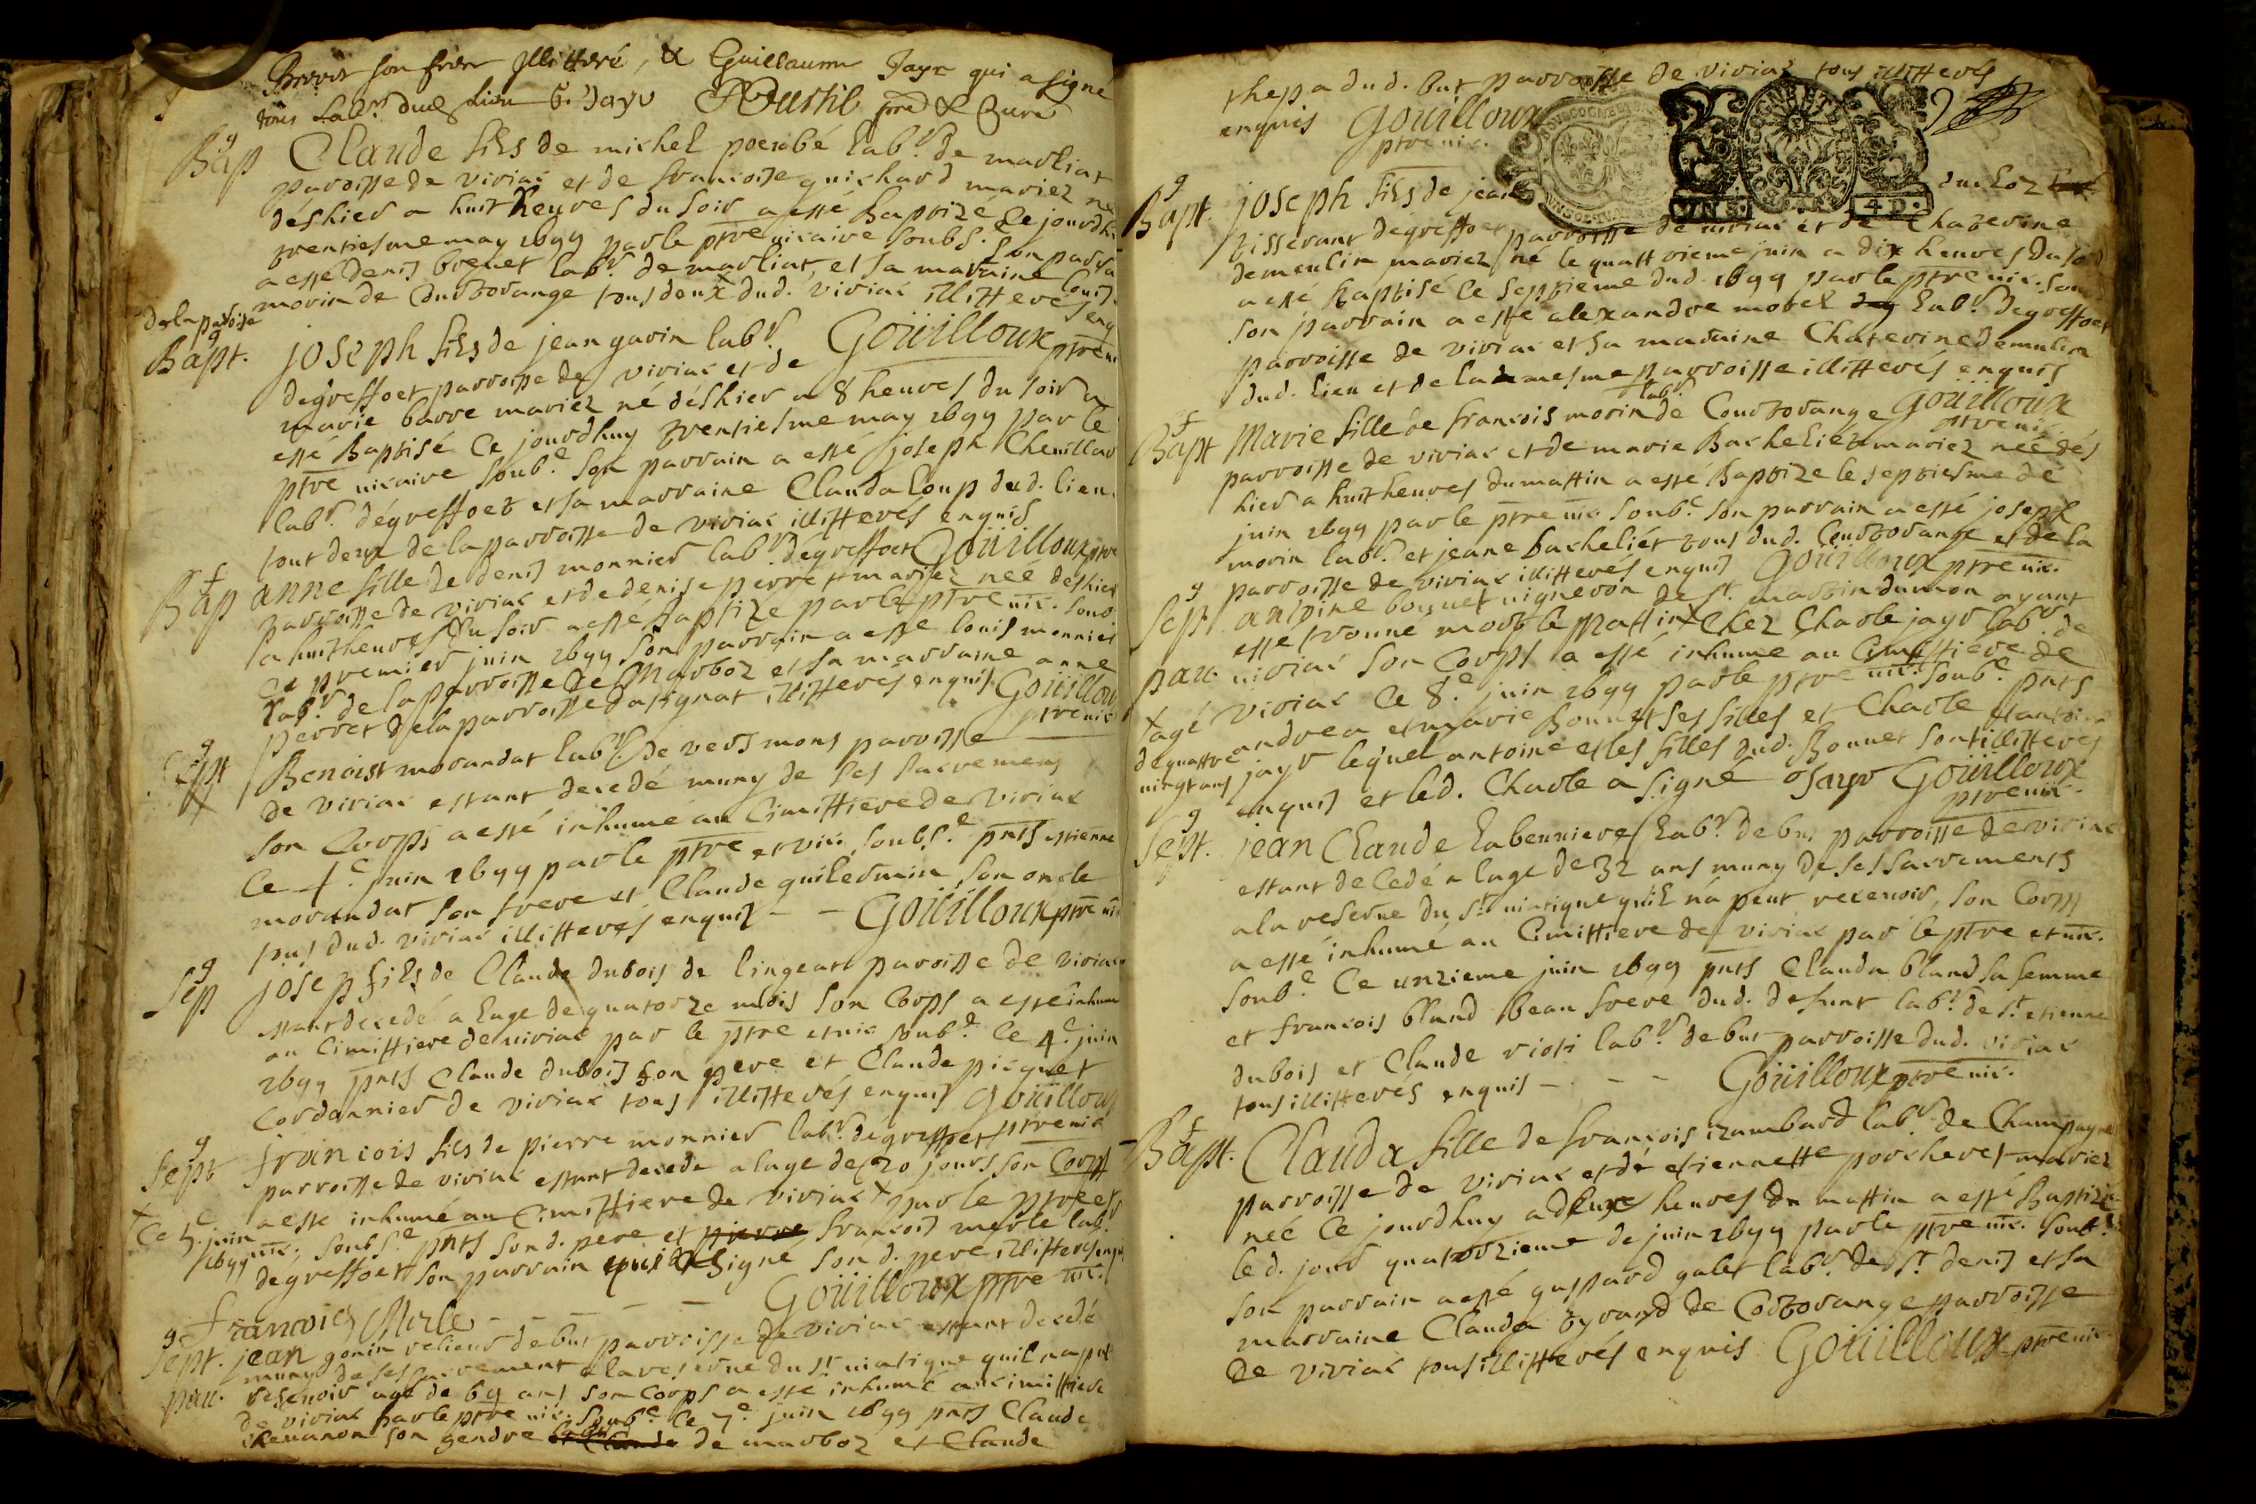 son frere illitteré, & Guillaume Jayr qui a signé
tous lab.r dud lieu G. Jayr pre & Curé
g
Bap Claude fils de michel poenbé lab.r de marliat
paroisse de viriac et de francoise guichard mariez né
déshier a huit heures du soir a esté Baptizé Ce jourdhuy
trentiesme may 1699 par le ptre vicaire soubs. son parra
a esté denis brevet lab.r de marliat, et sa maraine Louis
morin de Curtorange tous deux dud. viriac illitteré enq
de la paroisse
g
Bapt. joseph fils de jean gavin lab.r Goüilloux ptre vi
degreffoet parroisse de viriac et de
marie barre mariez né déshier a 8 heures du soir a
esté Baptisé Ce jourdhuy trentiesme may 1699 par le
ptre vicaire soub.e son parrain a esté joseph Chevillar
lab.r dégreffoet et sa marraine Clauda Loup dud. lieu
tout deux de la parroisse de viriac illitterés enquis
f
Bap anne fille de denis monnier lab.r dégreffoet Goüilloux ptre
parroisse de viriac et de denise perret mariez neé deshier
a huit heures du soir a esté baptize par le ptre vic. soub
ce premier juin 1699 son parrain a esté louis monnier
lab.r de la parroisse de Marboz et sa marraine anne
perret de la parroisse dasignat illitteres enquis Goüillou
ptre vic
g
Sept Benoist morandat lab.r de vers mons paroisse
de viriac estant decedé muny de ses sacremens
son Corps a esté inhumé au Cimittiere de viriac
Ce 4.e juin 1699 par le ptre et vic soubs.e pnts estienne
morandat son frere et Claude guillermin son oncle
tous dud. viriac illitterés enquis - - Goüilloux ptre vi
g
Sep josep fils de Claude dubois de lingeart paroisse de viriac
estant decedé a lage de quatorze mois son Corps a esté inhumé
au Cimittiere de viriac par le ptre et vic soub.e Ce 4.e juin
1699 pnts Claude dubois son pere et Claude piquet
Cordannier de viriac tous illitterés enquis Goüilloux
g
Sept francois fils de pierre monnier lab.r degreffoet ptre vic
parroisse de viriac estant decede a lage de 20 jours son Corps
a esté inhumé au Cimittiere de viriac + par le ptre et
+ Ce 5.e juin 1699
vic. soubs.e pnts son d. pere et pierre francois merle lab.
degreffoet son parrain qui a signe son d. pere illitteré enquis
Goüilloux ptre vic.
francois Merle - - - -
g
Sept. jean gonin relieur de but parroisse de viriac estant decedé
pau. muny de ses sacrement a la reserve du st viatique quil na peut
recevoir agé de 69 ans son Corps a esté inhumé au cimittiere
de viriac par le ptre vic. soub.e Ce 7.e juin 1699 pnts Claude
chevanon son gendre et Claude de marboz et Claude
thepa dud. But parroisse de viriac tous illitterés
enquis Goüilloux
ptre vic.
UNS. 4 D.
g
Bapt. joseph fils de jean
tisserant dégreffoet parroisse de viriac et de Chaterine
demeulin mariez né le quattrieme juin a dix heures du soir
a esté Baptisé Ce septieme dud. 1699 par le ptre vic. soub
son parrain a esté alexandre morel lab.r degreffoet
parroisse de viriac et sa maraine Chaterine demulin
dud. lieu et de la mesme parroisse illitterés enquis
f
Bapt Marie fille de francois morin lab.r de Courtorange Goüilloux
ptre vic.
parroisse de viriac et de marie Bachelier mariez neé dés
hier a huit heures du mattin a esté Baptize le septiesme de
juin 1699 par le ptre vic. soub.e son parrain a esté joseph
morin lab.r et jeane bachelier tous dud. Courtorange et de la
parroisse de viriac illitterés enquis Goüilloux ptre vic.
g
Sept antoine boquet vigneron de st. martin dumon ayant
esté trouvé mort le mattin + Chez Charle jayr lab.r de
pau. viriac son Corps a esté inhumé au Cimittiere de
+ agé de quattre vingt ans
viriac Ce 8.e juin 1699 par le ptre vic. soub.e pnts
andrea et marie Bonnet ses filles et Charle + antoine
jayr lequel antoine et les filles dud. Bonnet sont illitteres
enquis et led. Charle a signé Jayr Goüilloux
ptre vic.
g
Sept. jean Claude Labeuniere lab.r de but parroisse de viriac
estant decedé a lage de 32 ans muny de ses sacrements
a la reserve du st viatique quil na peut recevoir, son Corps
a esté inhumé au Cimittiere de viriac par le ptre et vic.
soub.e Ce unzieme juin 1699 pnts Clauda bland sa femme
et francois bland beau frere dud. defunt lab.r de st etienne
dubois et Claude viosi lab.r de but parroisse dud. viriac
tous illitterés enquis - - - Goüilloux ptre vic.
f
Bapt. Clauda fille de francois rambard lab.r de Champagne
parroisse de viriac et dé etiennette porcheret mariez
neé Ce jourdhuy a deux heures du mattin a esté Baptizé
le d. jour quatorzieme de juin 1699 par le ptre vic. soub.e
son parrain a esté gaspard galet lab.r de st. denis et sa
marraine Clauda tyrand de Cortorange parroisse
de viriac tous illitterés enquis Goüilloux ptre vic